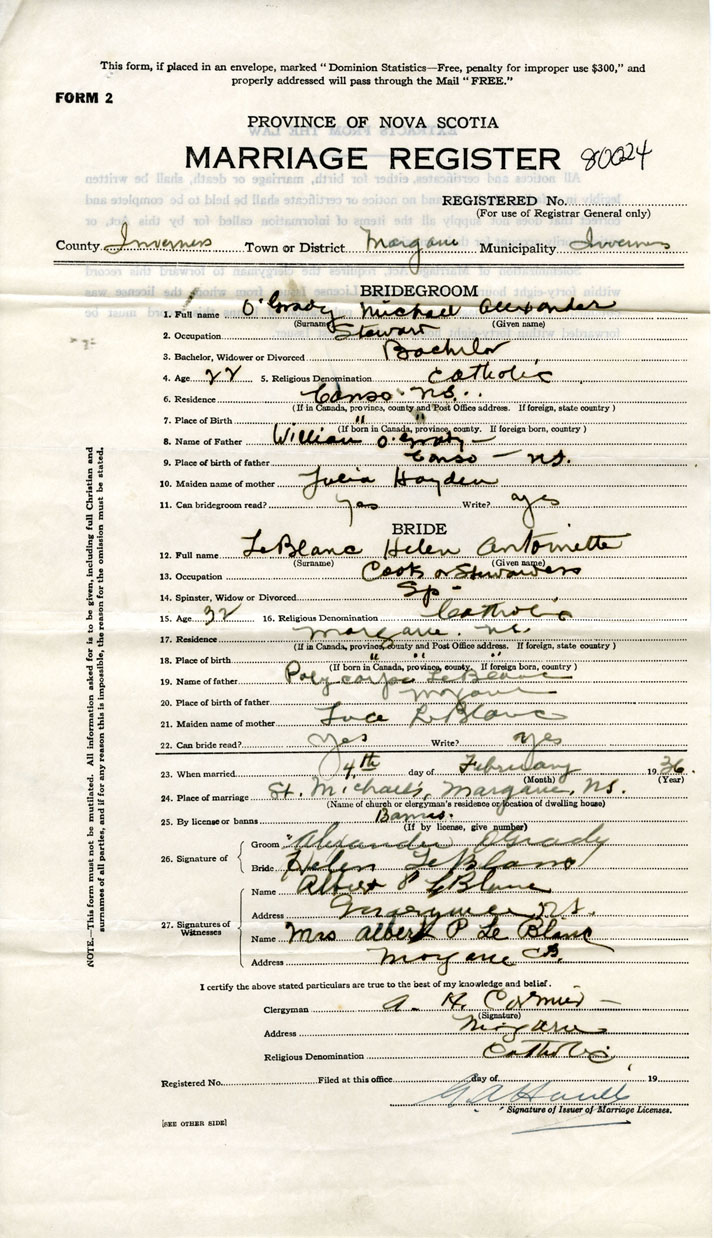 This form, if placed in an envelope, marked “Dominion Statistics—Free, penalty for improper use $300,” and
properly addressed will pass through the Mail “FREE.”
FORM 2
PROVINCE OF NOVA SCOTIA
MARRIAGE REGISTER 80024
REGISTERED No.
(For use of Registrar General only)
County Inverness Town or District Margaree Municipality Inverness
BRIDEGROOM
1. Full name O'Grady Michael Alexander
(Surname) (Given name)
2. Occupation Stewart
3. Bachelor, Widower or Divorced Bachelor
4. Age 22 5. Religious Denomination Catholic
6. Residence Canso N.S.
(If in Canada, province, county and Post Office address. If foreign, state country)
7. Place of Birth " "
(If born in Canada, province, county. If foreign born, country)
8. Name of Father William O'Grady
9. Place of birth of father Canso — N.S.
10. Maiden name of mother Julia Hayden
11. Can bridegroom read? yes Write? yes
BRIDE
12. Full name LeBlanc Helen Antoinette
(Surname) (Given name)
13. Occupation Cook or
14. Spinster, Widow or Divorced Sp
15. Age 32 16. Religious Denomination Catholic
17. Residence Margaree N.S.
(If in Canada, province, county and Post Office address. If foreign, state country)
18. Place of birth " " "
(If born in Canada, province, county. If foreign born, country)
19. Name of father Polycarpe LeBlanc
20. Place of birth of father Margaree
21. Maiden name of mother Luce LeBlanc
22. Can bride read? yes Write? yes
23. When married 4th day of February 1936
(Month) (Year)
24. Place of marriage St. Michael's, Margaree, N.S.
(Name of church or clergyman's residence or location of dwelling house)
25. By license or banns Banns.
(If by license, give number)
26. Signature of
Groom Alexander O'Grady
Bride Helen LeBlanc
27. Signatures of Witnesses
Name Albert P LeBlanc
Address N.S.
Name Mrs Albert P Le Blanc
Address Margaree C.B.
I certify the above stated particulars are true to the best of my knowledge and belief.
Clergyman A. H. Cormier
(Signature)
Address Margaree
Religious Denomination Catholic
Registered No. Filed at this office day of 19
Signature of Issuer of Marriage Licenses.
[SEE OTHER SIDE]
NOTE.—This form must not be mutilated. All information asked for is to be given, including full Christian and
surnames of all parties, and if for any reason this is impossible, the reason for the omission must be stated.